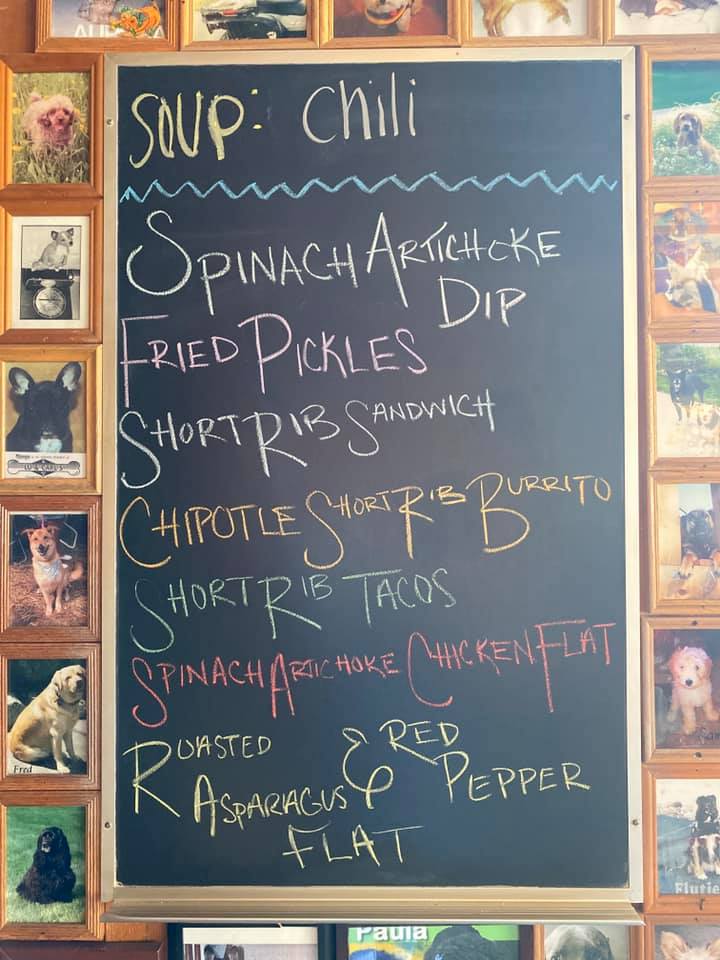 SOUP: Chili
SPINACH ARTICHOKE
DIP
FRIED PICKLES
SHORT RIB SANDWICH
CHIPOTLE SHORT RIB BURRITO
SHORT RIB TACOS
SPINACH ARTICHOKE CHICKEN FLAT
ROASTED & RED
ASPARAGUS PEPPER
FLAT
Fred
Flutie
Paula